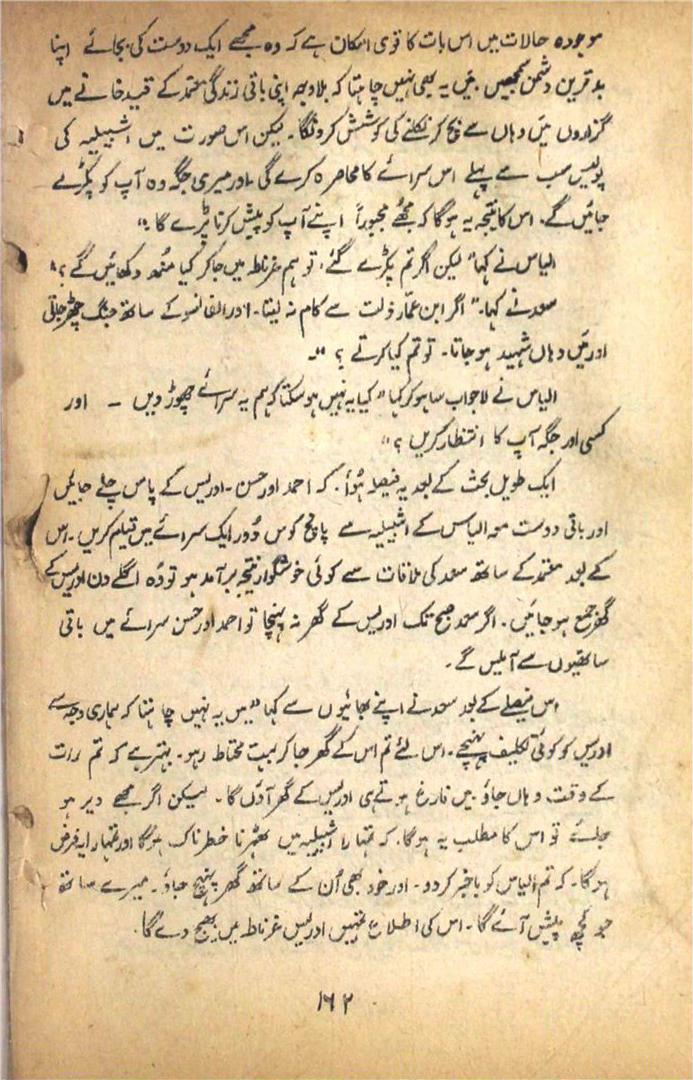 موجودہ حالات میں اس بات کا قوی امکان ہے کہ وہ مجھے ایک دوست کی بجائے اپنا
بدترین دشمن سمجھیں میں یہ بھی نہیں چاہتا کہ بلاوجہ اپنی باقی زندگی معتمد کے قیدخانے میں
گزاروں میں وہاں سے بچ کر نکلنے کی کوشش کرونگا۔ لیکن اس صورت میں اشبیلیہ کی
پولیس سب سے پہلے اس سرائے کا محاصرہ کرے گی۔ اور میری جگہ وہ آپ کو پکڑلے
جائیں گے۔ اس کا نتیجہ یہ ہوگا کہ مجھے مجبوراً اپنے آپ کو پیش کرنا پڑے گا۔"
الیاس نے کہا" لیکن اگر تم پکڑے گئے، تو ہم غرناطہ میں جاکر کیا منہ دکھائیں گے؟"
سعد نے کہا۔" اگر ابن عمار ذلت سے کام نہ لیتا۔ اور الفانسو کے ساتھ جنگ چھڑ جاتی
اور میں وہاں شہید ہو جاتا۔ تو تم کیا کرتے؟"۔
الیاس نے لاجواب سا ہو کر کہا "کیا یہ نہیں ہو سکتا کہ ہم یہ سرائے چھوڑ دیں ۔ اور
کسی اور جگہ آپ کا انتظار کریں؟"
ایک طویل بحث کے بعد یہ فیصلہ ہوا۔ کہ احمد اور حسن۔ ادریس کے پاس چلے جائیں
اور باقی دوست معہ الیاس کے اشبیلیہ سے پانچ کوس دور ایک سرائے میں قیام کریں۔ اس
کے بعد معتمد کے ساتھ سعد کی ملاقات سے کوئی خوشگوار نتیجہ برآمد ہو تو وہ اگلے دن ادریس کے
گھر جمع ہو جائیں۔ اگر سعد صبح تک ادریس کے گھر نہ پہنچا تو احمد اور حسن سرائے میں باقی
ساتھیوں سے آملیں گے۔
اس فیصلے کے بعد سعد نے اپنے بھائیوں سے کہا "میں یہ نہیں چاہتا کہ ہماری وجہ سے
ادریس کو کوئی تکلیف پہنچے۔ اس لئے تم اس کے گھر جاکر بہت محتاط رہو۔ بہتر ہے کہ تم رات
کے وقت وہاں جاؤ میں فارغ ہوتے ہی ادریس کے گھر آؤں گا۔ لیکن اگر مجھے دیر ہو
جائے تو اس کا مطلب یہ ہوگا۔ کہ تمہارا اشبیلیہ میں ٹھہرنا خطرناک ہوگا اور تمہارا یہ فرض
ہوگا۔ کہ تم الیاس کو باخبر کردو۔ اور خود بھی اُن کے ساتھ گھر پہنچ جاؤ۔ میرے ساتھ
جو کچھ پیش آئے گا۔ اس کی اطلاع تمہیں ادریس غرناطہ میں بھیج دے گا۔
۱۶۲